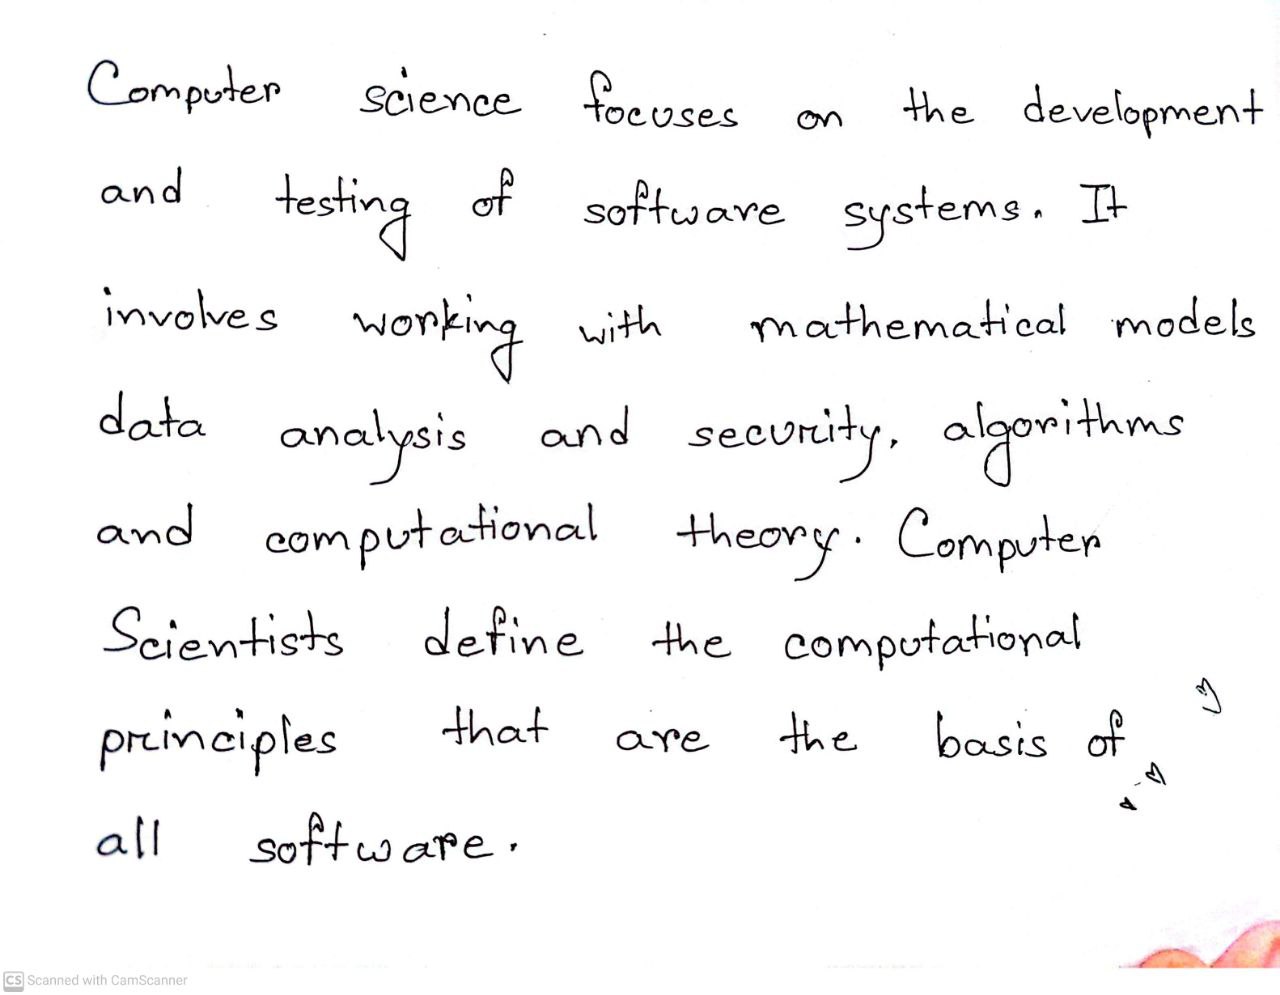 Computer science focuses on the development
and testing of software systems. It
involves working with mathematical models
data analysis and security, algorithms
and computational theory. Computer
Scientists define the computational
principles that are the basis of
all software.
CS Scanned with CamScanner